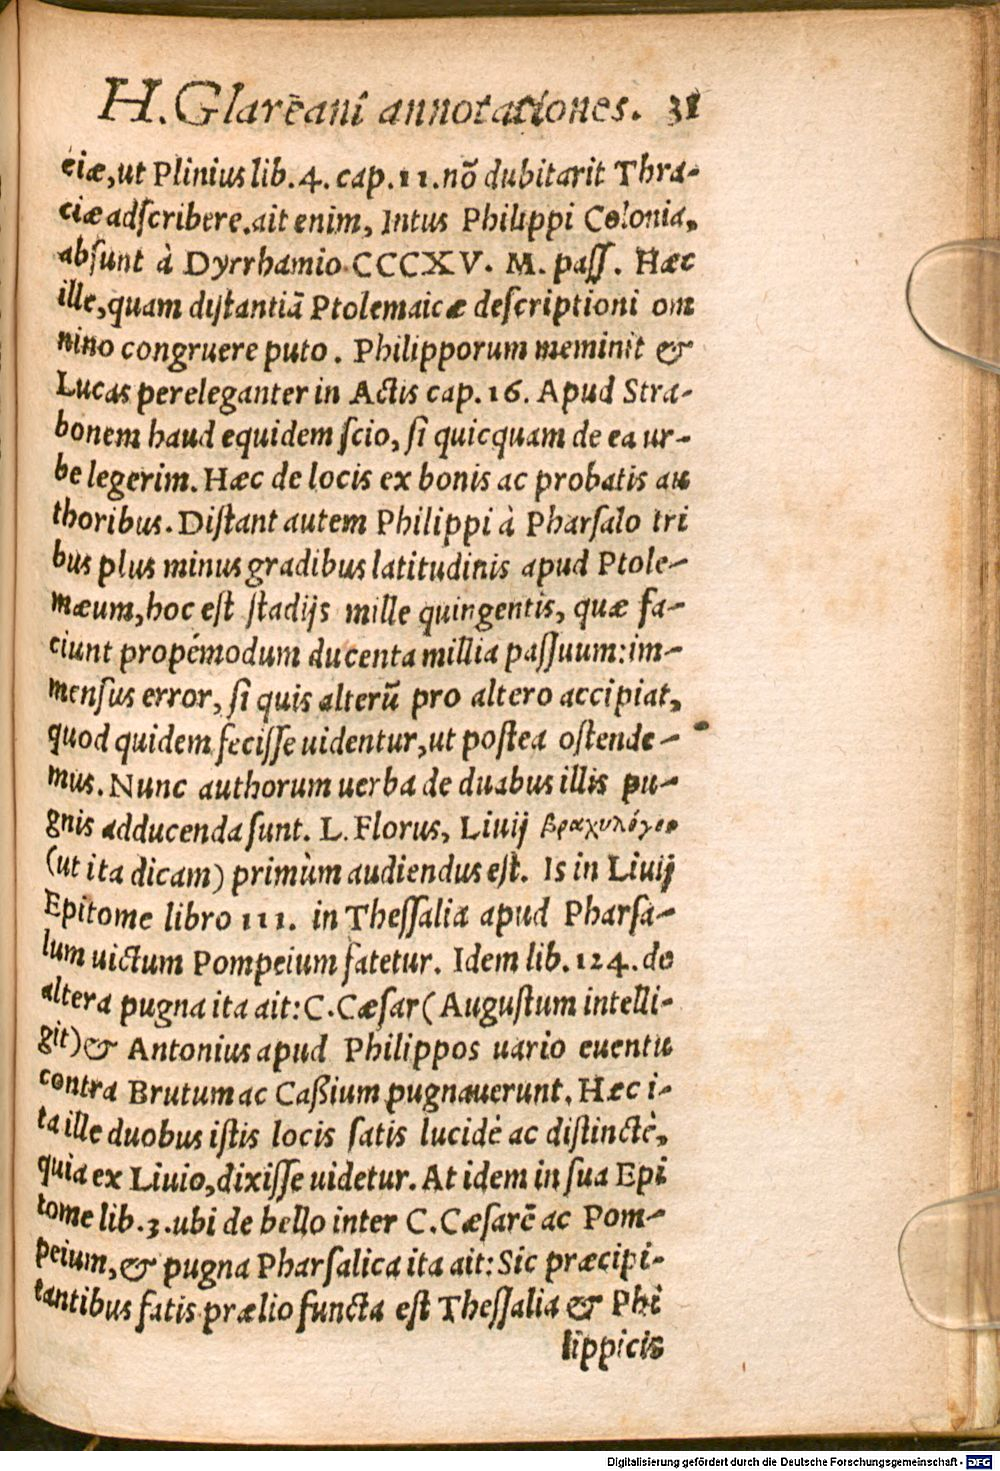 H. Glareani annotationes. 31
ciæ, ut Plinius lib. 4. cap. 11. nõ dubitarit Thra-
ciæ adſcribere. ait enim, Intus Philippi Colonia,
abſunt à Dyrrhamio CCCXV. M. paſſ. Hæc
ille, quam diſtantiã Ptolemaicæ deſcriptioni om
nino congruere puto. Philipporum meminit &
Lucas pereleganter in Actis cap. 16. Apud Stra-
bonem haud equidem ſcio, ſi quicquam de ea ur-
be legerim. Hæc de locis ex bonis ac probatis au
thoribus. Diſtant autem Philippi à Pharſalo tri
bus plus minus gradibus latitudinis apud Ptole-
mæum, hoc eſt ſtadijs mille quingentis, quæ fa-
ciunt propémodum ducenta millia paſſuum: im-
menſus error, ſi quis alterũ pro altero accipiat,
quod quidem feciſſe uidentur, ut poſtea oſtende-
mus. Nunc authorum uerba de duabus illis pu-
gnis adducenda ſunt. L. Florus, Liuij βραχυλόγος
(ut ita dicam) primùm audiendus eſt. Is in Liuij
Epitome libro 111. in Theſſalia apud Pharſa-
lum uictum Pompeium fatetur. Idem lib. 124. de
altera pugna ita ait: C. Cæſar (Auguſtum intelli-
git) & Antonius apud Philippos uario euentu
contra Brutum ac Caßium pugnauerunt. Hæc i-
ta ille duobus iſtis locis ſatis lucidè ac diſtinctè,
quia ex Liuio, dixiſſe uidetur. At idem in ſua Epi
tome lib. 3. ubi de bello inter C. Cæſarẽ ac Pom-
peium, & pugna Pharſalica ita ait: Sic præcipi-
tantibus fatis prælio functa eſt Theſſalia & Phi
lippicis
Digitalisierung gefördert durch die Deutsche Forschungsgemeinschaft - DFG